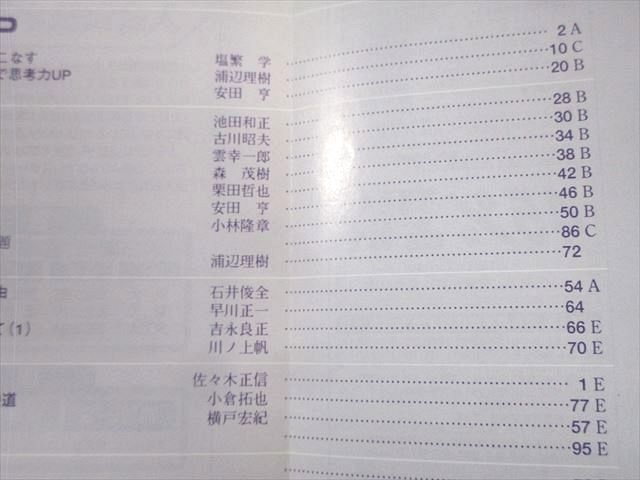 P
こなす 塩繁 学 2 A
で思考力UP 浦辺理樹 10 C
安田 亨 20 B
池田和正 28 B
古川昭夫 30 B
雲幸一郎 34 B
森 茂樹 38 B
栗田哲也 42 B
安田 亨 46 B
小林隆章 50 B
題 86 C
浦辺理樹 72
由 石井俊全 54 A
早川正一 64
て(1) 吉永良正 66 E
川ノ上帆 70 E
佐々木正信 1 E
道 小倉拓也 77 E
横戸宏紀 57 E
95 E